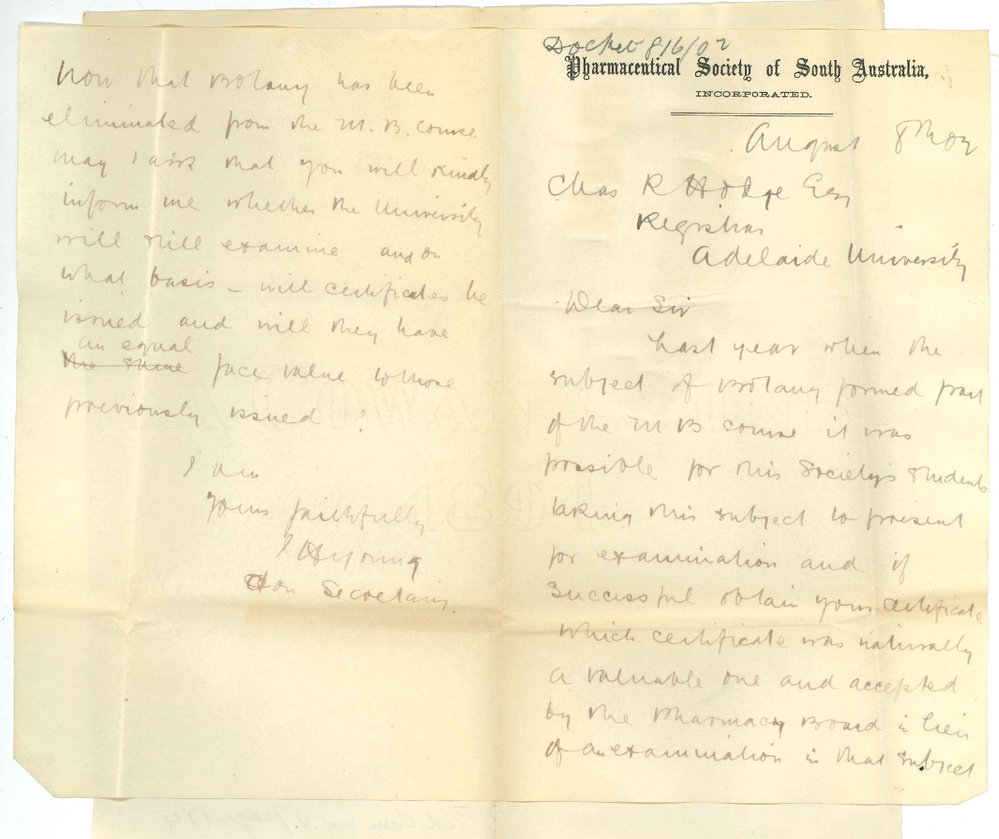 Docket 816/02
Pharmaceutical Society of South Australia,
INCORPORATED.
August 8th 02
Chas R Hodge Esq
Registrar
Adelaide University
Dear Sir
Last year when the
subject of Botany formed part
of the M B course it was
possible for this Society's students
taking this subject to present
for examination and if
successful obtain your certificate
which certificate was naturally
a valuable one and accepted
by the Pharmacy Board in lieu
of an examination in that subject
Now that Botany has been
eliminated from the M. B. course
may I ask that you will kindly
inform me whether the University
will still examine and on
what basis - will certificates be
issued and will they have
an equal
the same face value to those
previously issued ?
I am
Yours faithfully
J H Young
Hon Secretary.